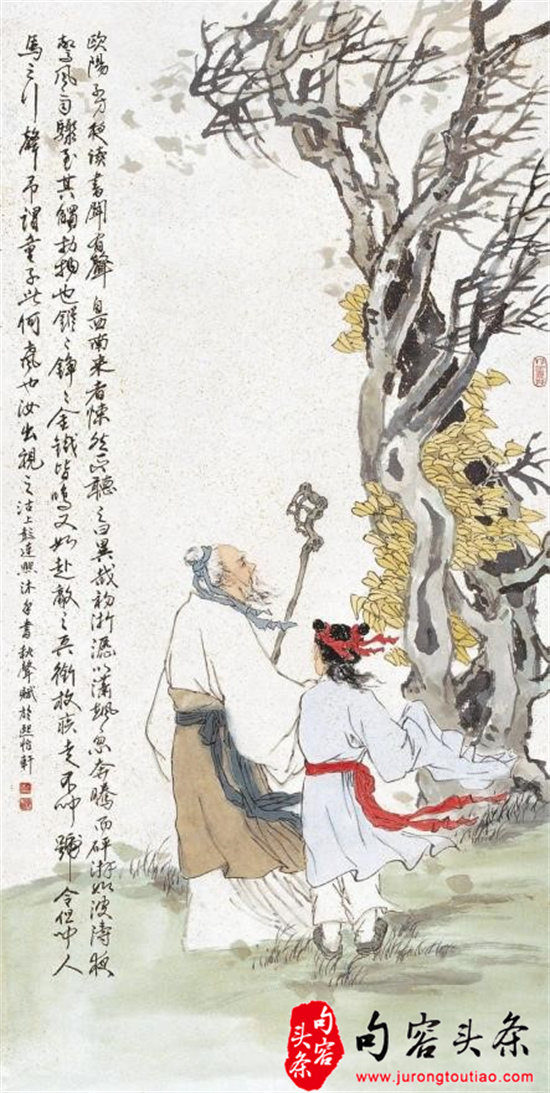 歐陽子方夜讀書聞有聲自西南来者悚然而聽之曰異哉初淅瀝以瀟颯忽奔騰而砰湃如波濤夜
驚風雨驟至其觸於物也鏦々錚々金鐵皆鳴又如赴敵之兵銜枚疾走不聞號令但聞人
馬之行聲予謂童子此何聲也汝出視之沽上彭連熙沐手書秋聲賦於熙怡軒
句容
头条
句容头条
www.jurongtoutiao.com